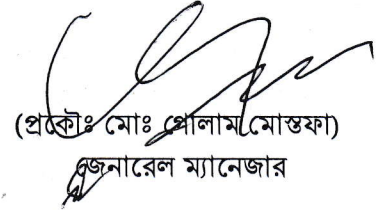 (প্রকৌঃ মোঃ গোলাম মোস্তফা)
জেনারেল ম্যানেজার